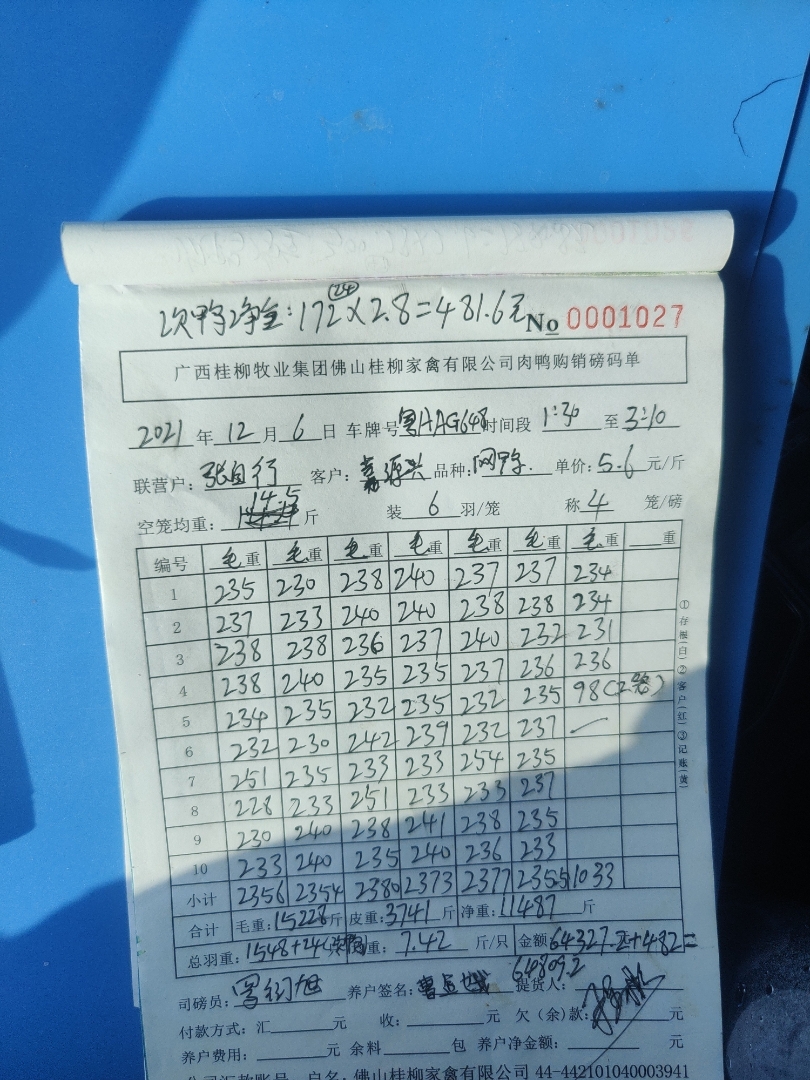 次鸭净重:172(24)×2.8=481.6元
No 0001027
广西桂柳牧业集团佛山桂柳家禽有限公司肉鸭购销磅码单
2021年12月6日 车牌号粤HAG648时间段1:30至3:10
联营户: 客户:嘉源兴 品种: 单价:5.6元/斤
空笼均重:14.5斤 装6羽/笼 称4笼/磅
编号 毛重 毛重 毛重 毛重 毛重 毛重 毛重 重
1 235 230 238 240 237 237 234
2 237 233 240 240 238 238 234
3 238 238 236 237 240 232 231
4 238 240 235 235 237 236 236
5 234 235 232 235 232 235 98(2笼)
6 232 230 242 239 232 237 —
7 251 235 233 233 254 235
8 228 233 251 233 233 237
9 230 240 238 241 238 235
10 233 240 235 240 236 233
小计 2356 2354 2380 2373 2377 2355 1033
合计 毛重:15228斤 皮重:3741斤 净重:11487斤
总羽重:1548+24 重:7.42斤/只 金额64327.2+482=
64809.2
司磅员: 养户签名: 提货人:
付款方式:汇 元 收: 元 欠(余)款: 元
养户费用: 元 余料 包 养户净金额: 元
户名:佛山桂柳家禽有限公司 44-442101040003941
①存根(白)②客户(红)③记账(黄)